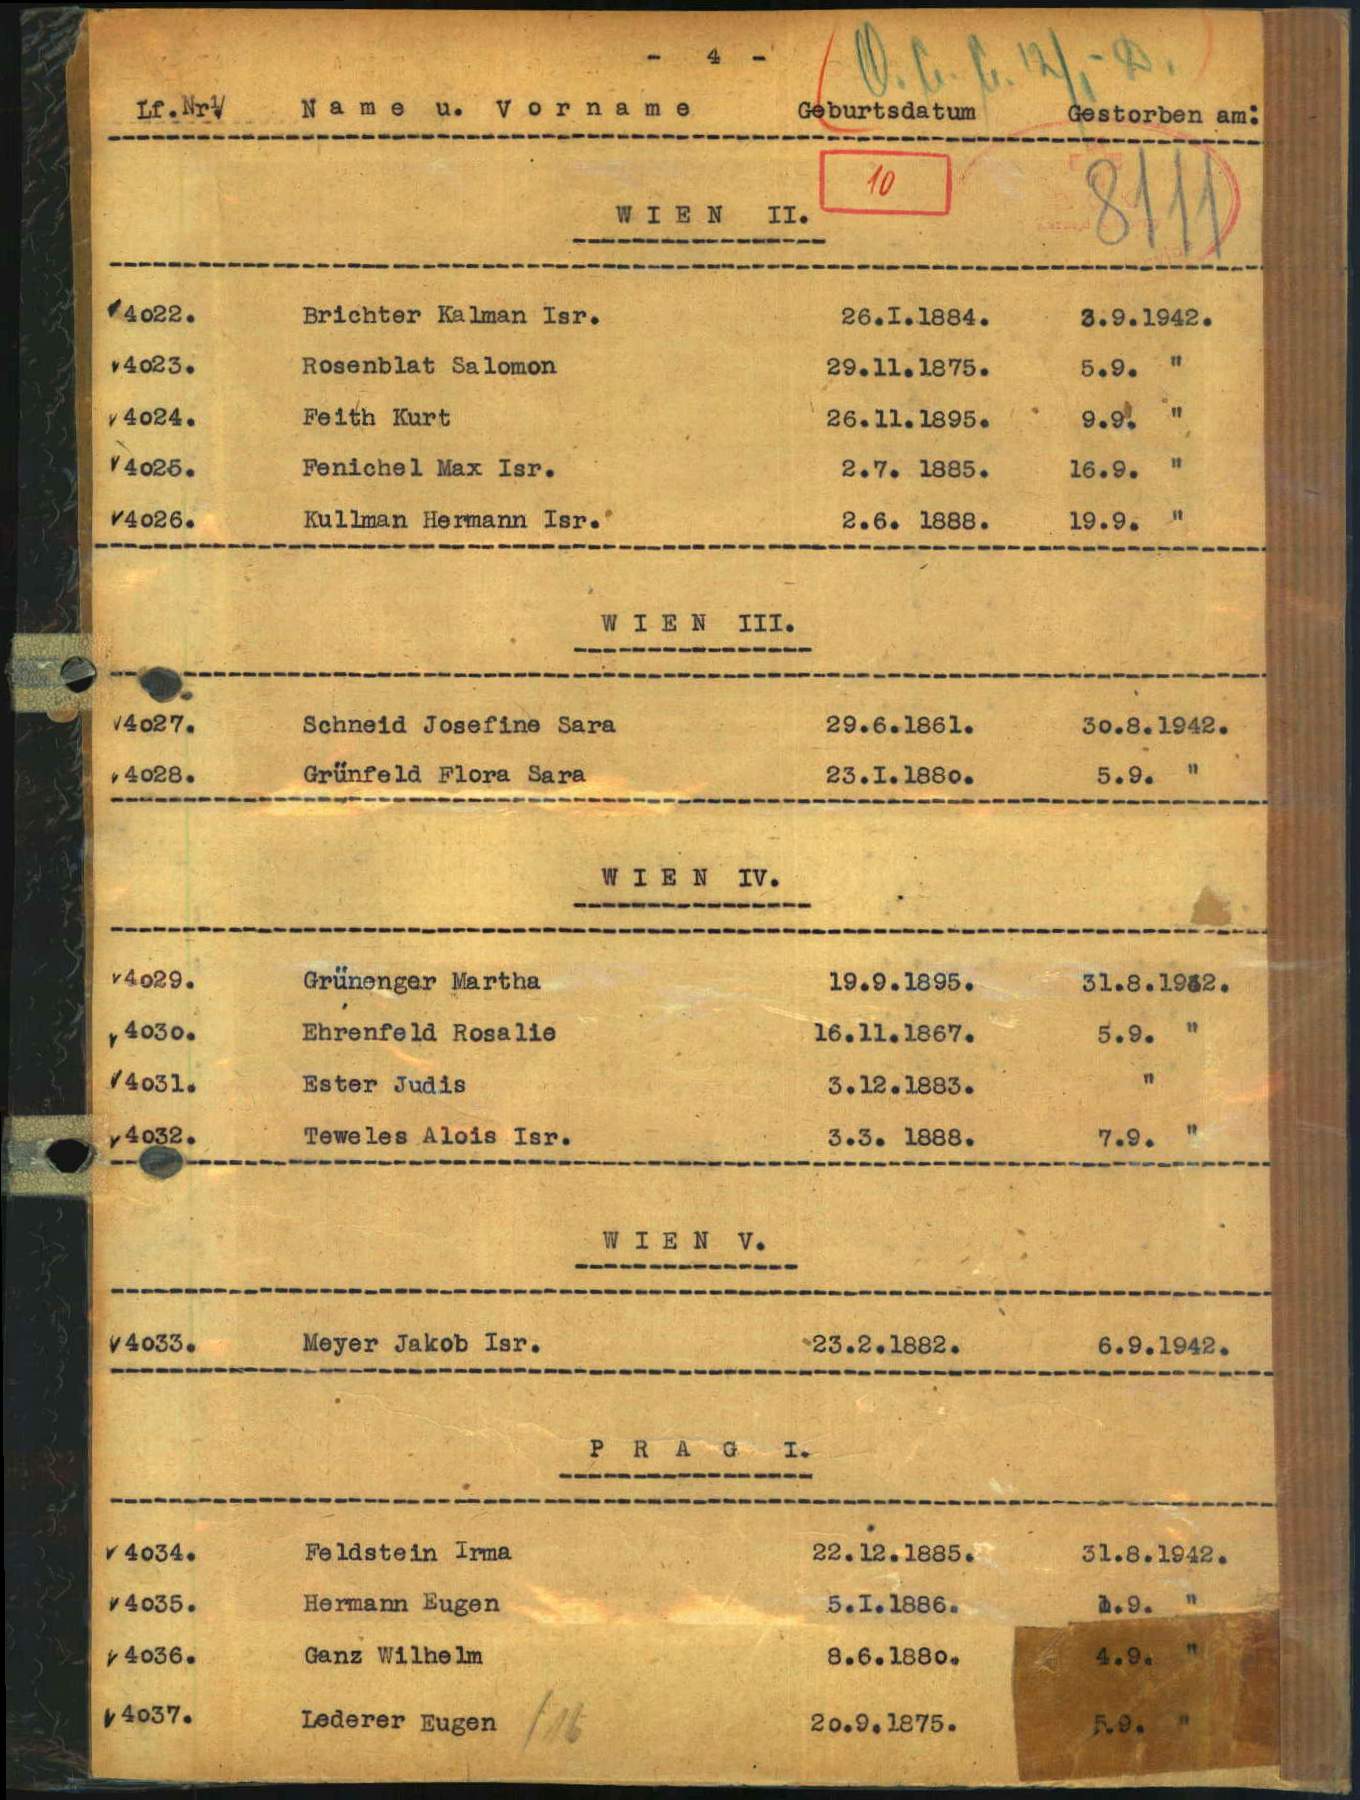 - 4 -
Lf.Nr. Name u. Vorname Geburtsdatum Gestorben am:
10
8111
WIEN II.
4022. Brichter Kalman Isr. 26.I.1884. 3.9.1942.
4023. Rosenblat Salomon 29.11.1875. 5.9. "
4024. Feith Kurt 26.11.1895. 9.9. "
4025. Fenichel Max Isr. 2.7. 1885. 16.9. "
4026. Kullman Hermann Isr. 2.6. 1888. 19.9. "
WIEN III.
4027. Schneid Josefine Sara 29.6.1861. 30.8.1942.
4028. Grünfeld Flora Sara 23.I.1880. 5.9. "
WIEN IV.
4029. Grünenger Martha 19.9.1895. 31.8.1942.
4030. Ehrenfeld Rosalie 16.11.1867. 5.9. "
4031. Ester Judis 3.12.1883. "
4032. Teweles Alois Isr. 3.3. 1888. 7.9. "
WIEN V.
4033. Meyer Jakob Isr. 23.2.1882. 6.9.1942.
PRAG I.
4034. Feldstein Irma 22.12.1885. 31.8.1942.
4035. Hermann Eugen 5.I.1886. 1.9. "
4036. Ganz Wilhelm 8.6.1880. 4.9. "
4037. Lederer Eugen 20.9.1875. 5.9. "